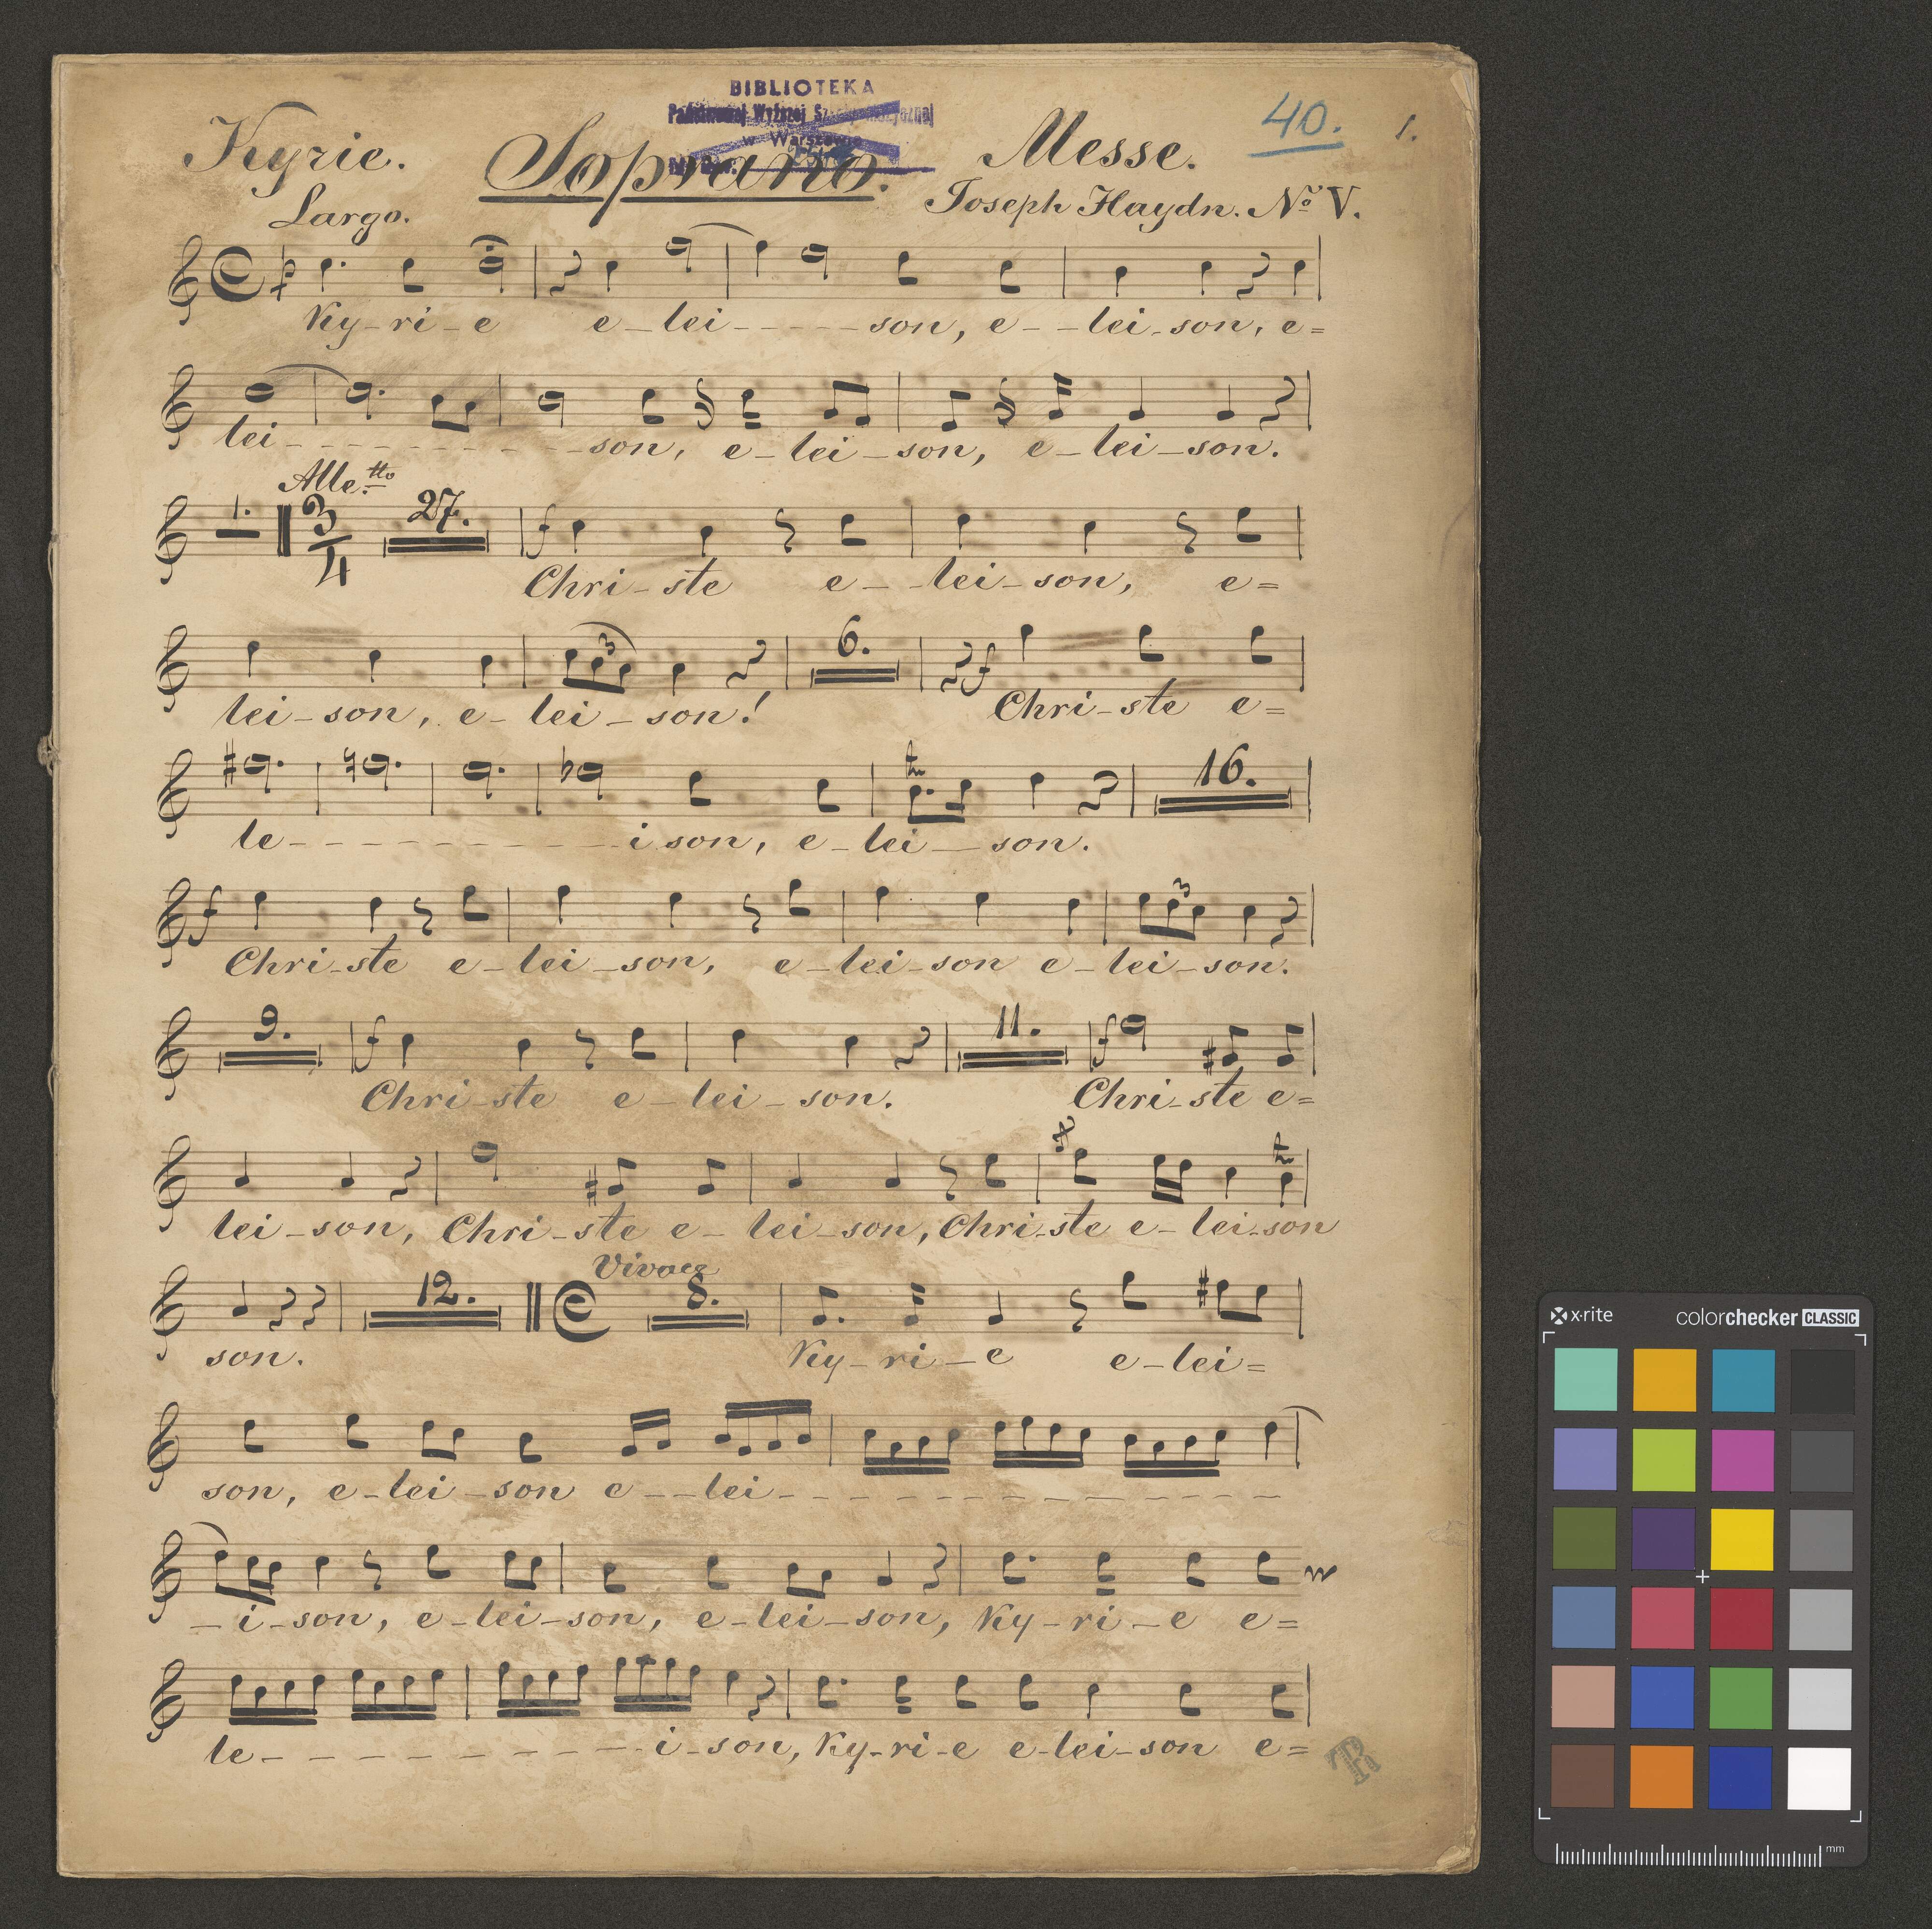 BIBLIOTEKA
Państwowej Wyższej
w Warszawie
40.
1.
Kyrie.
Soprano.
Messe.
Largo.
Joseph Haydn. No V.
Ky-ri-e e-lei----son, e--lei-son, e=
lei--------son, e-lei-son, e-lei-son.
Alle.tto
1. 3/4 27. f
Chri-ste e--lei-son, e=
3 6. f
lei-son, e-lei-son! Chri-ste e=
tr 16.
le----------i son, e-lei-son.
f 3
Chri-ste e-lei-son, e-lei-son e-lei-son.
9. f 11. f
Chri-ste e-lei-son. Chri-ste e=
tr
lei-son, Chri-ste e-lei-son, Chri-ste e-lei-son
Vivace
12. 8.
son. Ky-ri-e e-lei=
son, e-lei-son e--lei-------------
-i-son, e-lei-son, e-lei-son, Ky-ri-e e=
le---------i-son, Ky-ri-e e-lei-son e=
x-rite colorchecker CLASSIC
mm